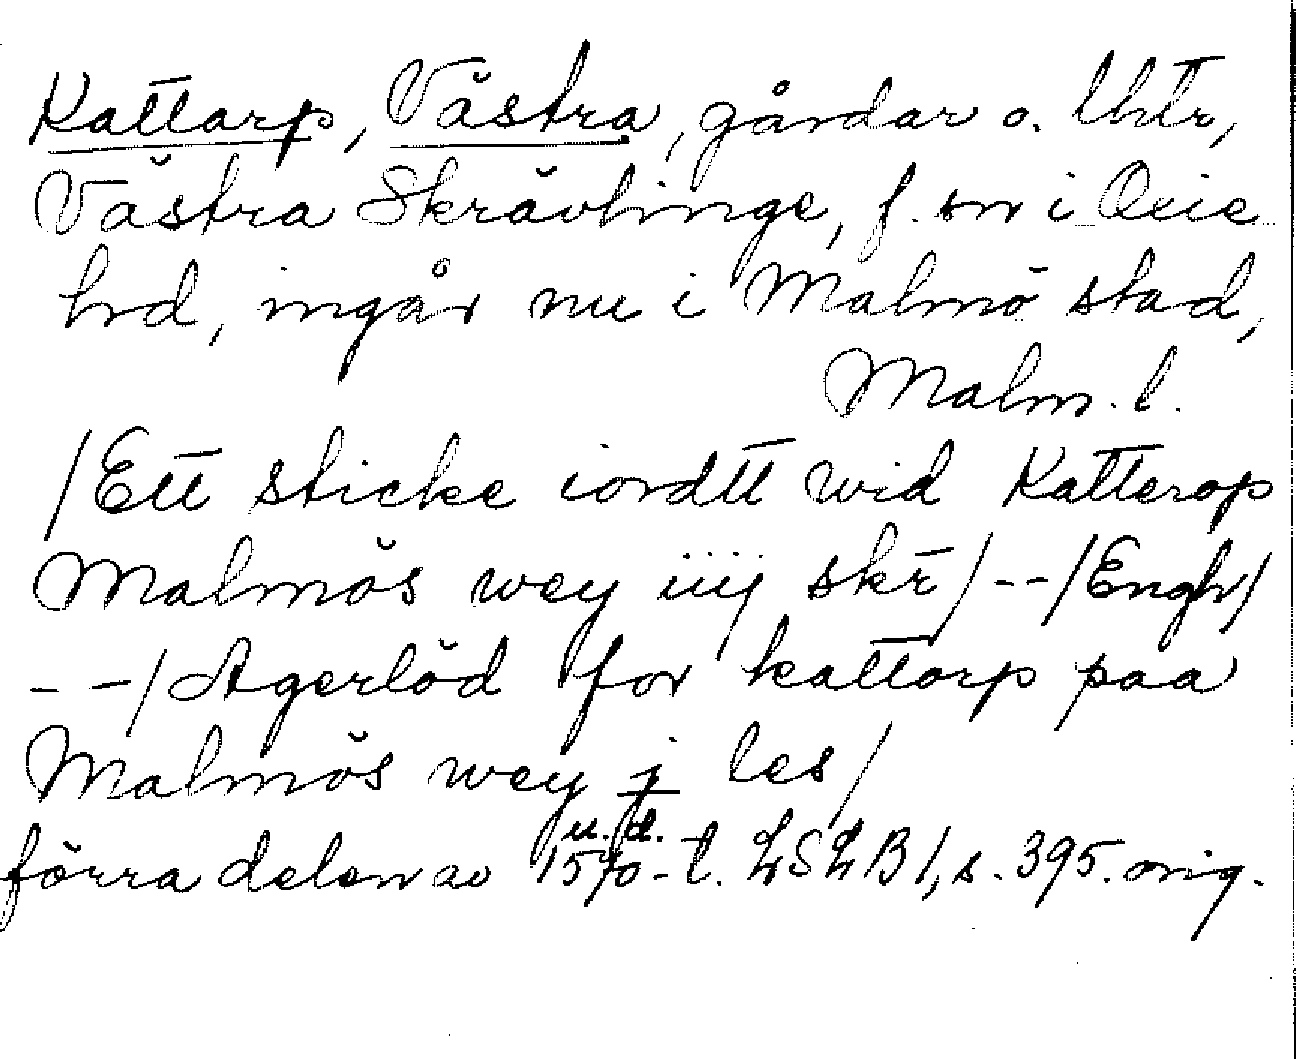 Kattarp, Västra, gårdar o. lhtr,
Västra Skrävlinge, f. sn i Oxie
hrd, ingår nu i Malmö stad,
Malm. l.
/Ett sticke iordtt wid Katterop
Malmös wey iiij skr/--/Engh/
--/Agerlöd for kattorp paa
Malmös wey j les/
u. d.
förra delen av 1570-t. LSLB 1, s. 395. orig.